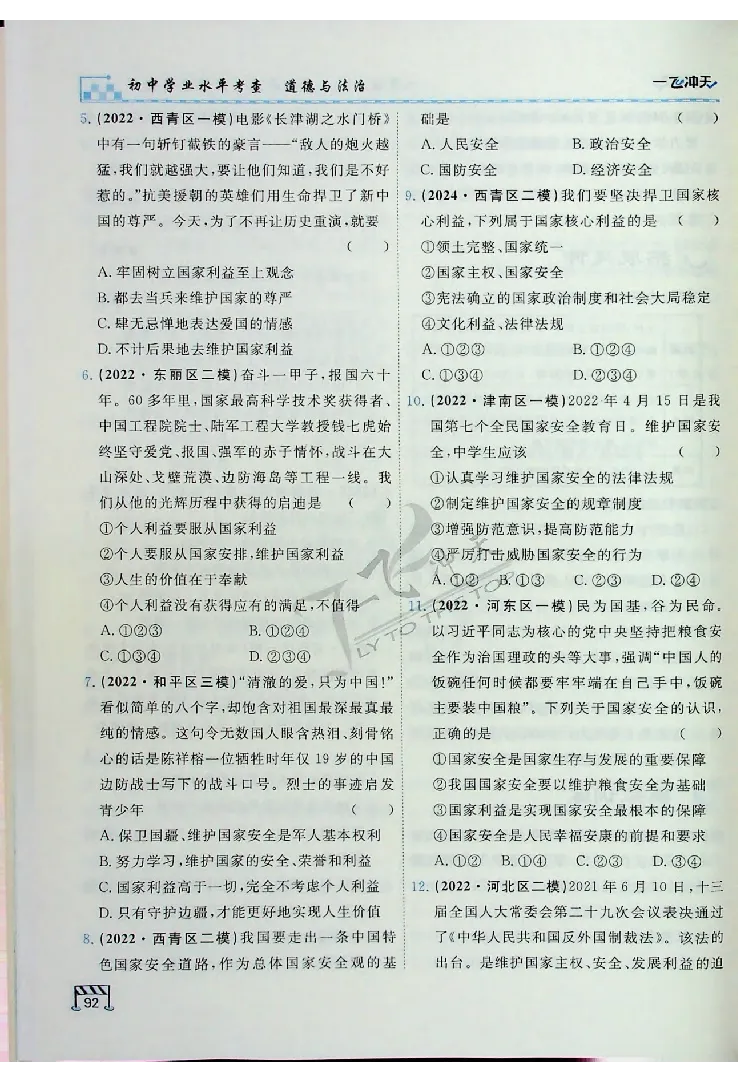 初中学业水平考查 道德与法治
一飞冲天
5. (2022·西青区一模)电影《长津湖之水门桥》
中有一句斩钉截铁的豪言——“敌人的炮火越
猛,我们就越强大,要让他们知道,我们是不好
惹的。”抗美援朝的英雄们用生命捍卫了新中
国的尊严。今天,为了不再让历史重演,就要
( )
A. 牢固树立国家利益至上观念
B. 都去当兵来维护国家的尊严
C. 肆无忌惮地表达爱国的情感
D. 不计后果地去维护国家利益
6. (2022·东丽区二模)奋斗一甲子,报国六十
年。60多年里,国家最高科学技术奖获得者、
中国工程院院士、陆军工程大学教授钱七虎始
终坚守爱党、报国、强军的赤子情怀,战斗在大
山深处、戈壁荒漠、边防海岛等工程一线。我
们从他的光辉历程中获得的启迪是 ( )
①个人利益要服从国家利益
②个人要服从国家安排,维护国家利益
③人生的价值在于奉献
④个人利益没有获得应有的满足,不值得
A. ①②③ B. ①②④
C. ①③④ D. ②③④
7. (2022·和平区三模)“清澈的爱,只为中国!”
看似简单的八个字,却饱含对祖国最深最真最
纯的情感。这句令无数国人眼含热泪、刻骨铭
心的话是陈祥榕一位牺牲时年仅19岁的中国
边防战士写下的战斗口号。烈士的事迹启发
青少年 ( )
A. 保卫国疆、维护国家安全是军人基本权利
B. 努力学习,维护国家的安全、荣誉和利益
C. 国家利益高于一切,完全不考虑个人利益
D. 只有守护边疆,才能更好地实现人生价值
8. (2022·西青区二模)我国要走出一条中国特
色国家安全道路,作为总体国家安全观的基
础是 ( )
A. 人民安全 B. 政治安全
C. 国防安全 D. 经济安全
9. (2024·西青区二模)我们要坚决捍卫国家核
心利益,下列属于国家核心利益的是 ( )
①领土完整、国家统一
②国家主权、国家安全
③宪法确立的国家政治制度和社会大局稳定
④文化利益、法律法规
A. ①②③ B. ①②④
C. ①③④ D. ②③④
10. (2022·津南区一模)2022年4月15日是我
国第七个全民国家安全教育日。维护国家安
全,中学生应该 ( )
①认真学习维护国家安全的法律法规
②制定维护国家安全的规章制度
③增强防范意识,提高防范能力
④严厉打击威胁国家安全的行为
A. ①② B. ①③ C. ②③ D. ②④
11. (2022·河东区一模)民为国基,谷为民命。
以习近平同志为核心的党中央坚持把粮食安
全作为治国理政的头等大事,强调“中国人的
饭碗任何时候都要牢牢端在自己手中,饭碗
主要装中国粮”。下列关于国家安全的认识,
正确的是 ( )
①国家安全是国家生存与发展的重要保障
②我国国家安全要以维护粮食安全为基础
③国家利益是实现国家安全最根本的保障
④国家安全是人民幸福安康的前提和要求
A. ①② B. ①④ C. ②③ D. ③④
12. (2022·河北区二模)2021年6月10日,十三
届全国人大常委会第二十九次会议表决通过
了《中华人民共和国反外国制裁法》。该法的
出台。是维护国家主权、安全、发展利益的迫
92